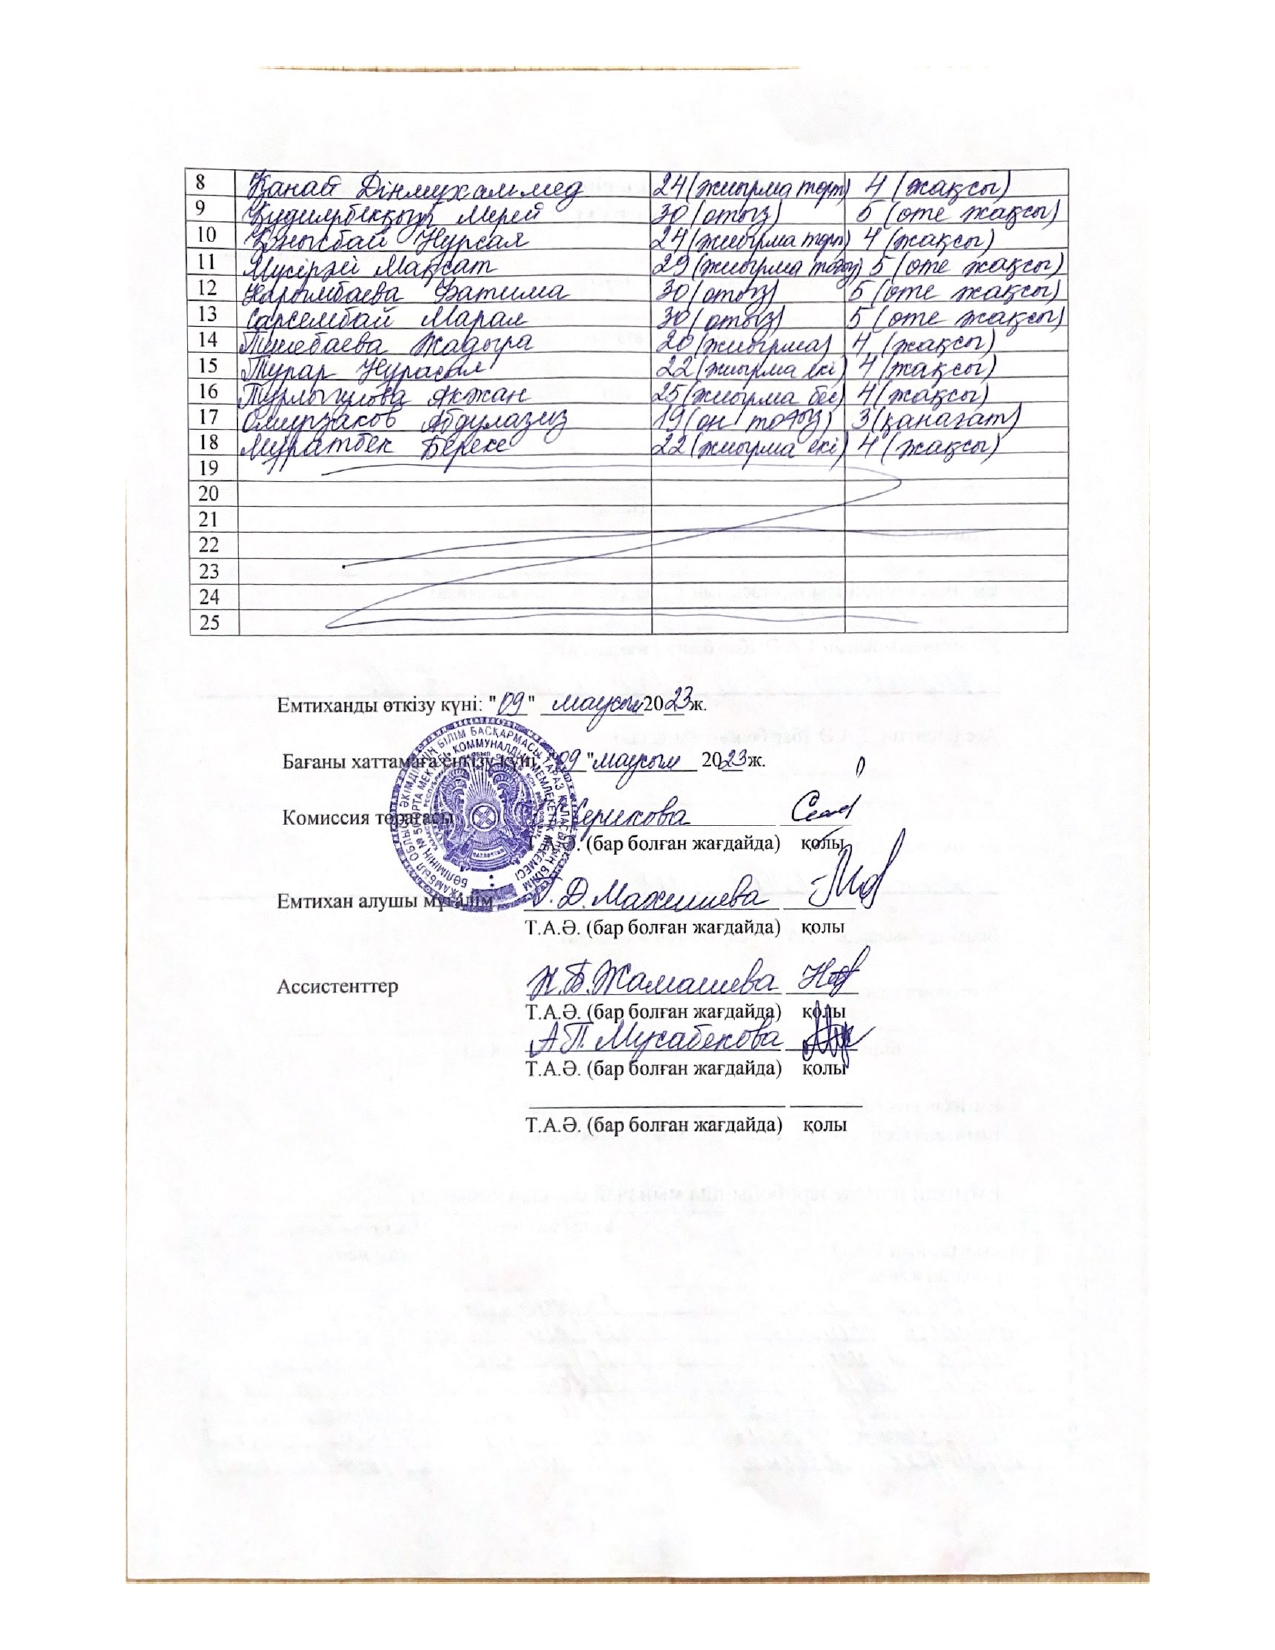 8 Қанат Дінмухаммед 24 (жиырма төрт) 4 (жақсы)
9 Қудиярбекқызы Мерей 30 (отыз) 5 (өте жақсы)
10 Қонысбай Нұрсая 24 (жиырма төрт) 4 (жақсы)
11 Мүсірәлі Мақсат 29 (жиырма тоғыз) 5 (өте жақсы)
12 Нарымбаева Фатима 30 (отыз) 5 (өте жақсы)
13 Сарсембай Марал 30 (отыз) 5 (өте жақсы)
14 Тишебаева Жадыра 20 (жиырма) 4 (жақсы)
15 Тұрар Нұрасыл 22 (жиырма екі) 4 (жақсы)
16 Турлыгулова Ақжан 25 (жиырма бес) 4 (жақсы)
17 Омирзаков Абдулазиз 19 (он тоғыз) 3 (қанағат)
18 Мұратбек Береке 22 (жиырма екі) 4 (жақсы)
19
20
21
22
23
24
25
Емтиханды өткізу күні: "09" маусым 2023 ж.
Бағаны хаттамаға енгізу күні "09" маусым 2023 ж.
Комиссия төрағасы Керикова
Т.А.Ә. (бар болған жағдайда) қолы
Емтихан алушы мұғалім Г.Д.Махишева
Т.А.Ә. (бар болған жағдайда) қолы
Ассистенттер Н.Б.Жамашева
Т.А.Ә. (бар болған жағдайда) қолы
А.П.Мусабекова
Т.А.Ә. (бар болған жағдайда) қолы
Т.А.Ә. (бар болған жағдайда) қолы